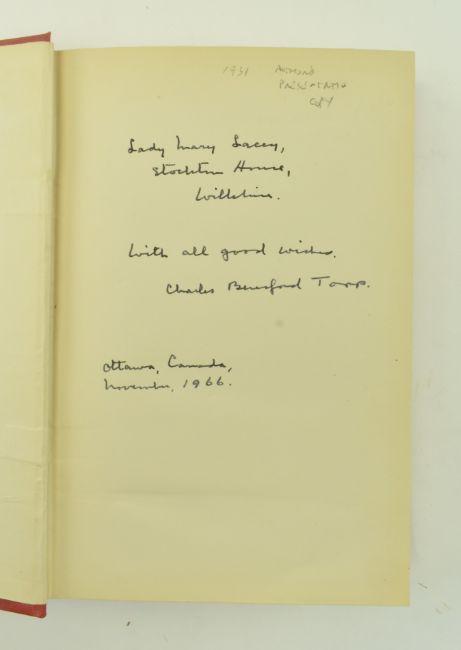 1931 AUTHORS
PRESENTATION
COPY
Lady Mary Lacey,
Stockton House,
Wiltshire.
With all good wishes.
Charles Beresford Topp.
Ottawa, Canada,
November, 1966.